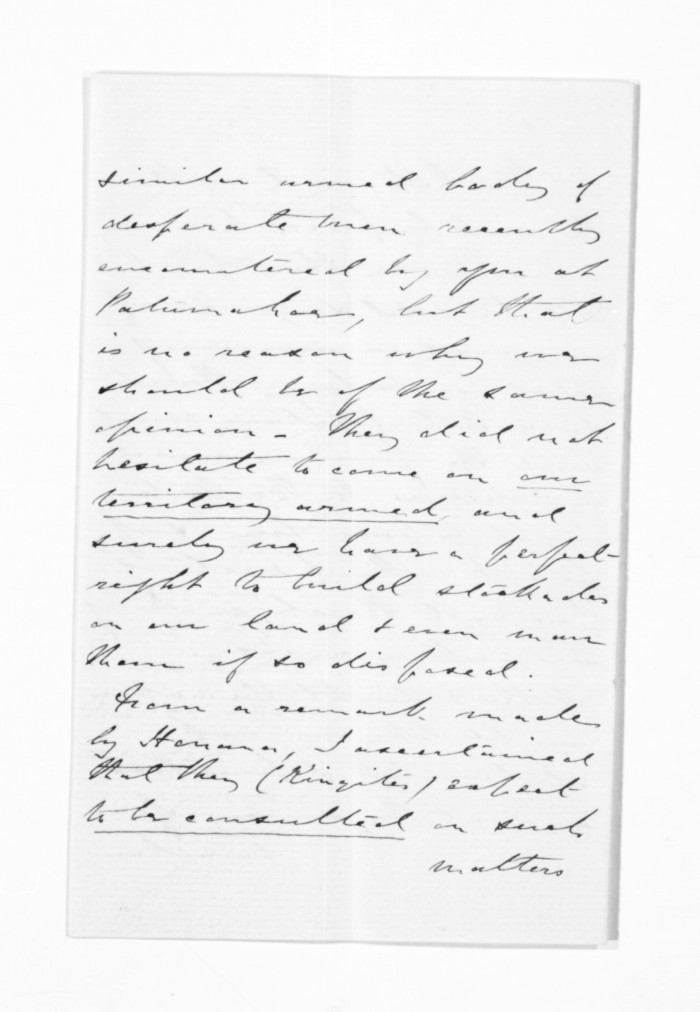 similar armed body of
desperate men recently
encountered by you at
Patumahoe, but that
is no reason why we
should be of the same
opinion - They did not
hesitate to come on our
territory armed, and
surely we have a perfect
right to build stockades
on our land & even man
them if so disposed.
From a remark made
by Honana, I ascertained
that they (Kingites) expect
to be consulted on such
matters